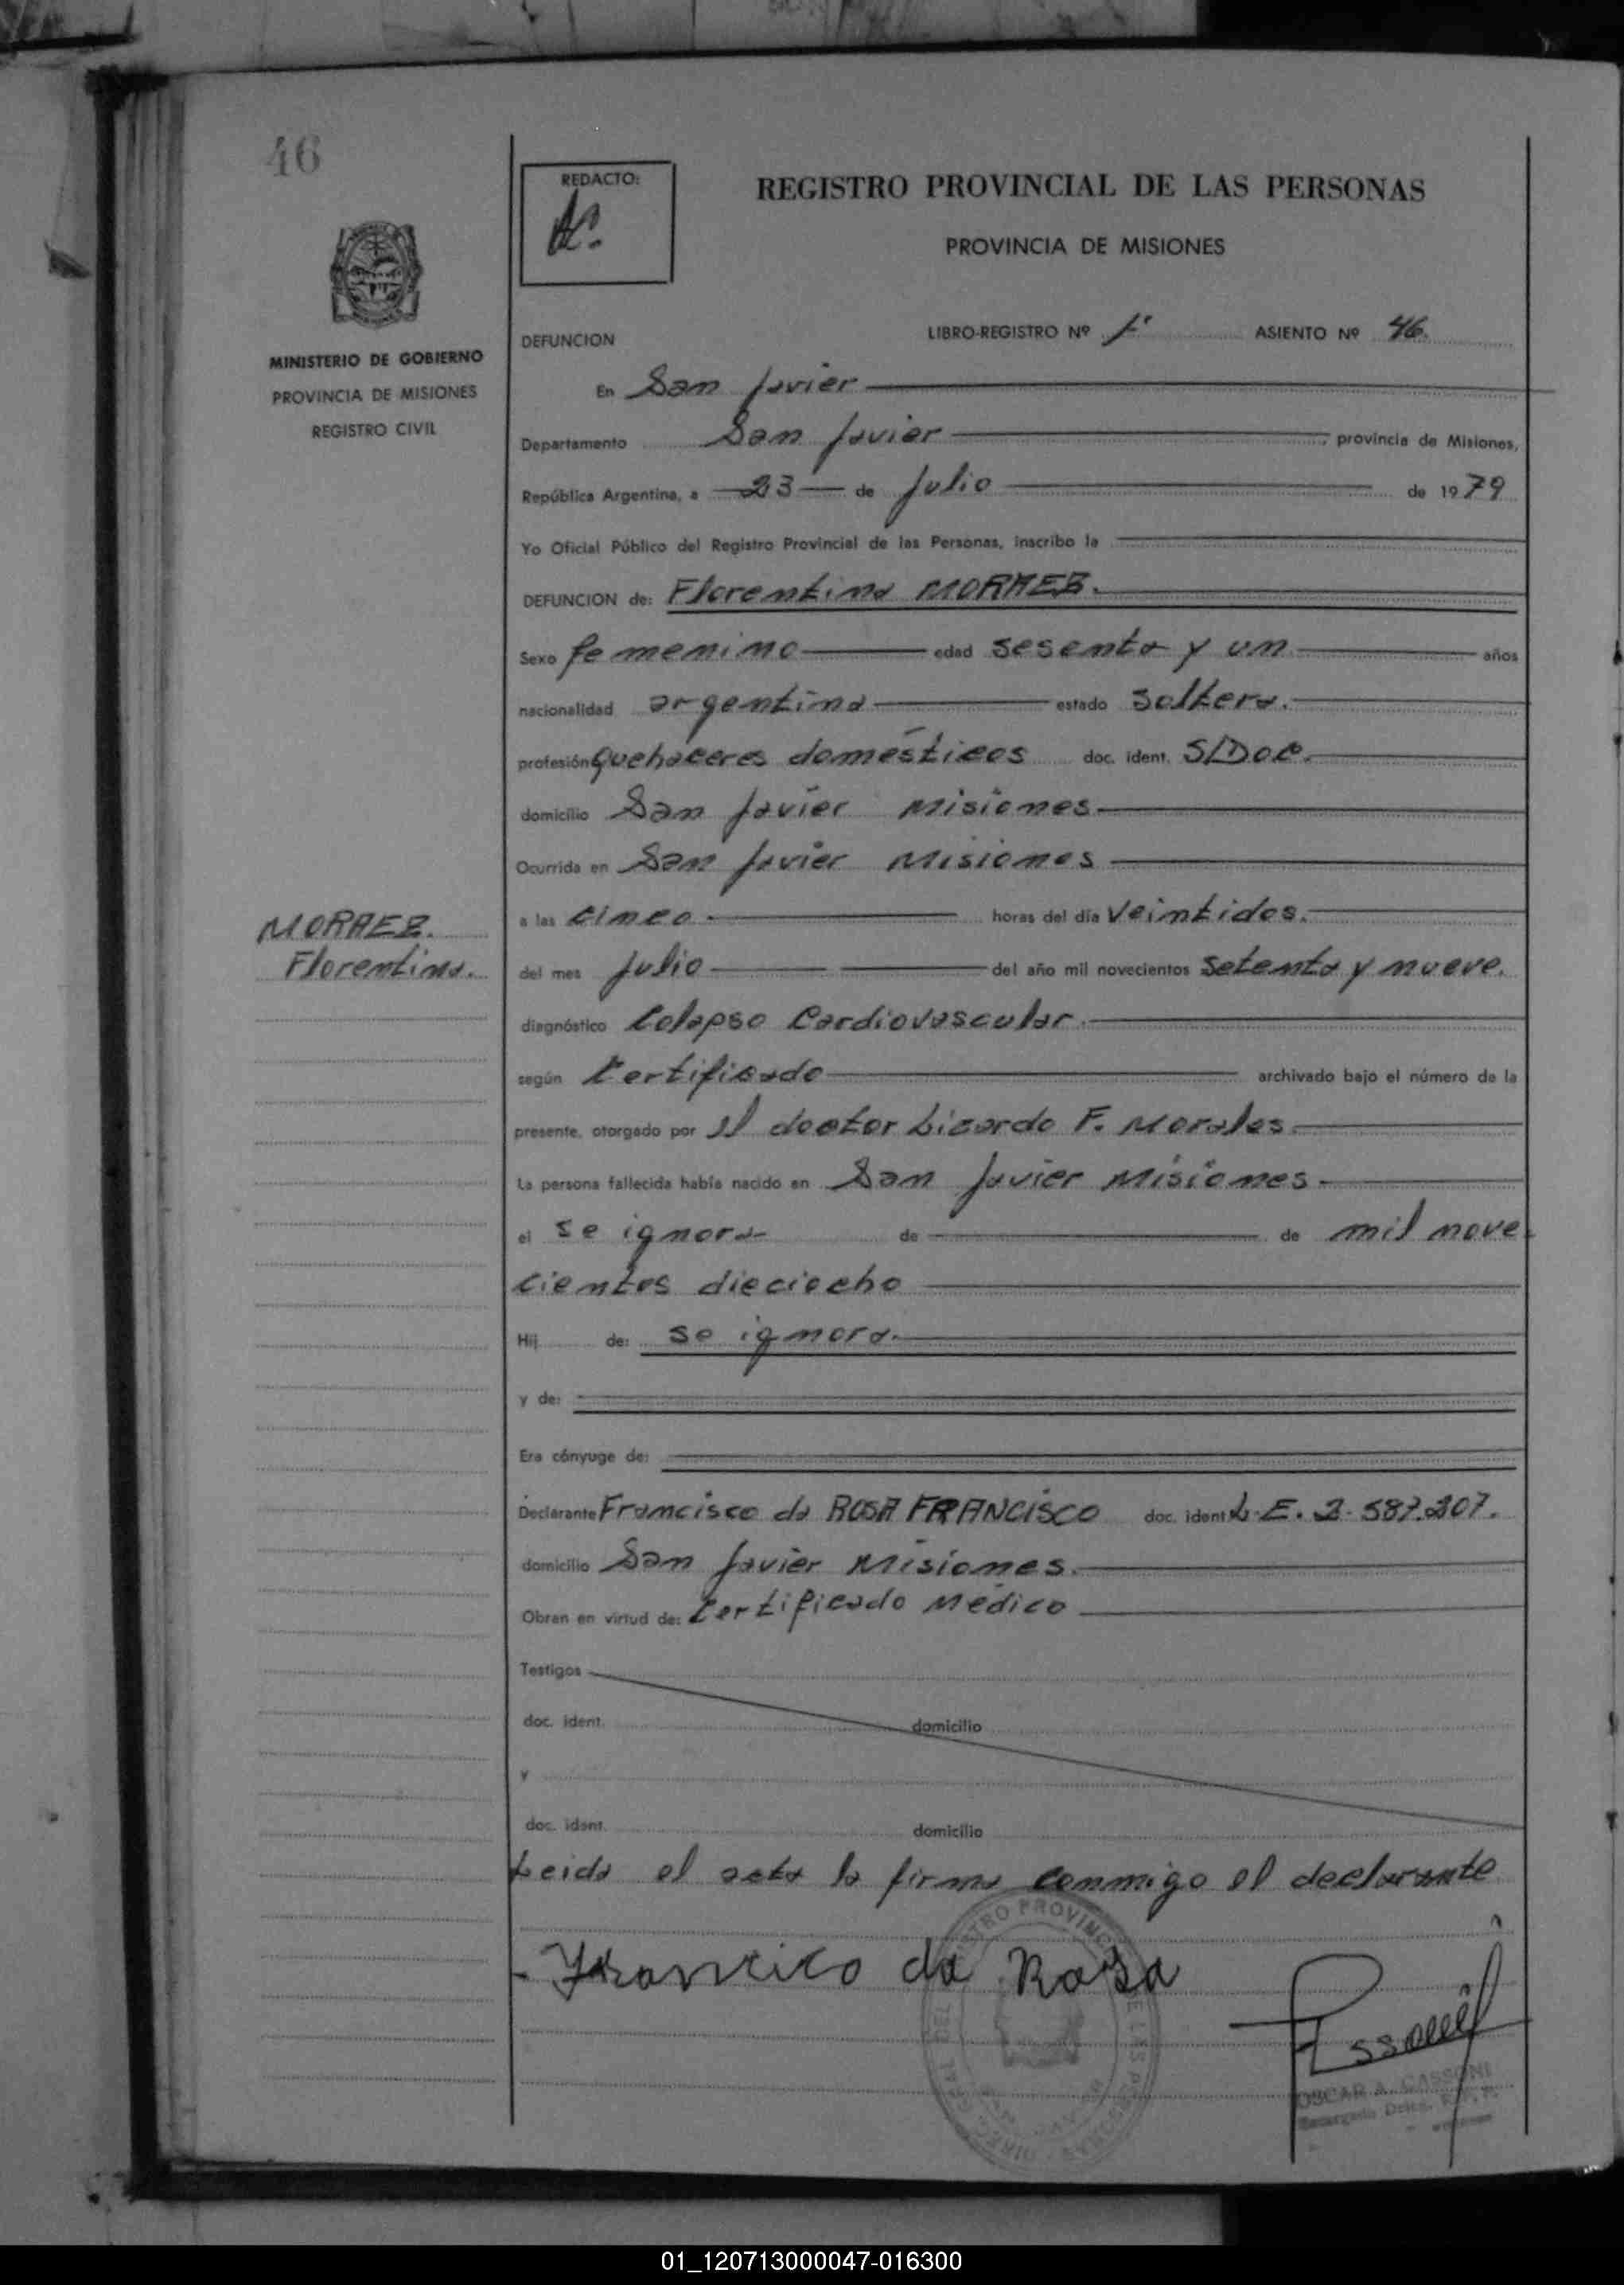 46
REDACTO:
REGISTRO PROVINCIAL DE LAS PERSONAS
PROVINCIA DE MISIONES
MINISTERIO DE GOBIERNO
PROVINCIA DE MISIONES
REGISTRO CIVIL
DEFUNCION LIBRO-REGISTRO Nº 1º ASIENTO Nº 46.
En San Javier
Departamento San Javier, provincia de Misiones,
República Argentina, a 23 de Julio de 1979
Yo Oficial Público del Registro Provincial de las Personas, inscribo la
DEFUNCION de: Florentina MORAEZ.
Sexo femenino edad sesenta y un años
nacionalidad argentina estado soltera.
profesión quehaceres domésticos doc. ident. S/Doc.
domicilio San Javier Misiones
Ocurrida en San Javier Misiones
a las cinco. horas del día veintidos.
MORAEZ.
Florentina.
del mes Julio del año mil novecientos setenta y nueve.
diagnóstico Colapso Cardiovascular.
según Certificado archivado bajo el número de la
presente, otorgado por el doctor Lizardo F. Morales
La persona fallecida había nacido en San Javier Misiones
el se ignora de de mil nove
cientos dieciocho
Hij de: se ignora.
y de:
Era cónyuge de:
Declarante Francisco da ROSA FRANCISCO doc. ident. L.E. 2.587.207.
domicilio San Javier Misiones.
Obran en virtud de: Certificado Médico
Testigos
doc. ident. domicilio
y
doc. ident. domicilio
Leida el acta la firma conmigo el declarante
Francisco da Rosa
OSCAR A. CASSONI
01_120713000047-016300